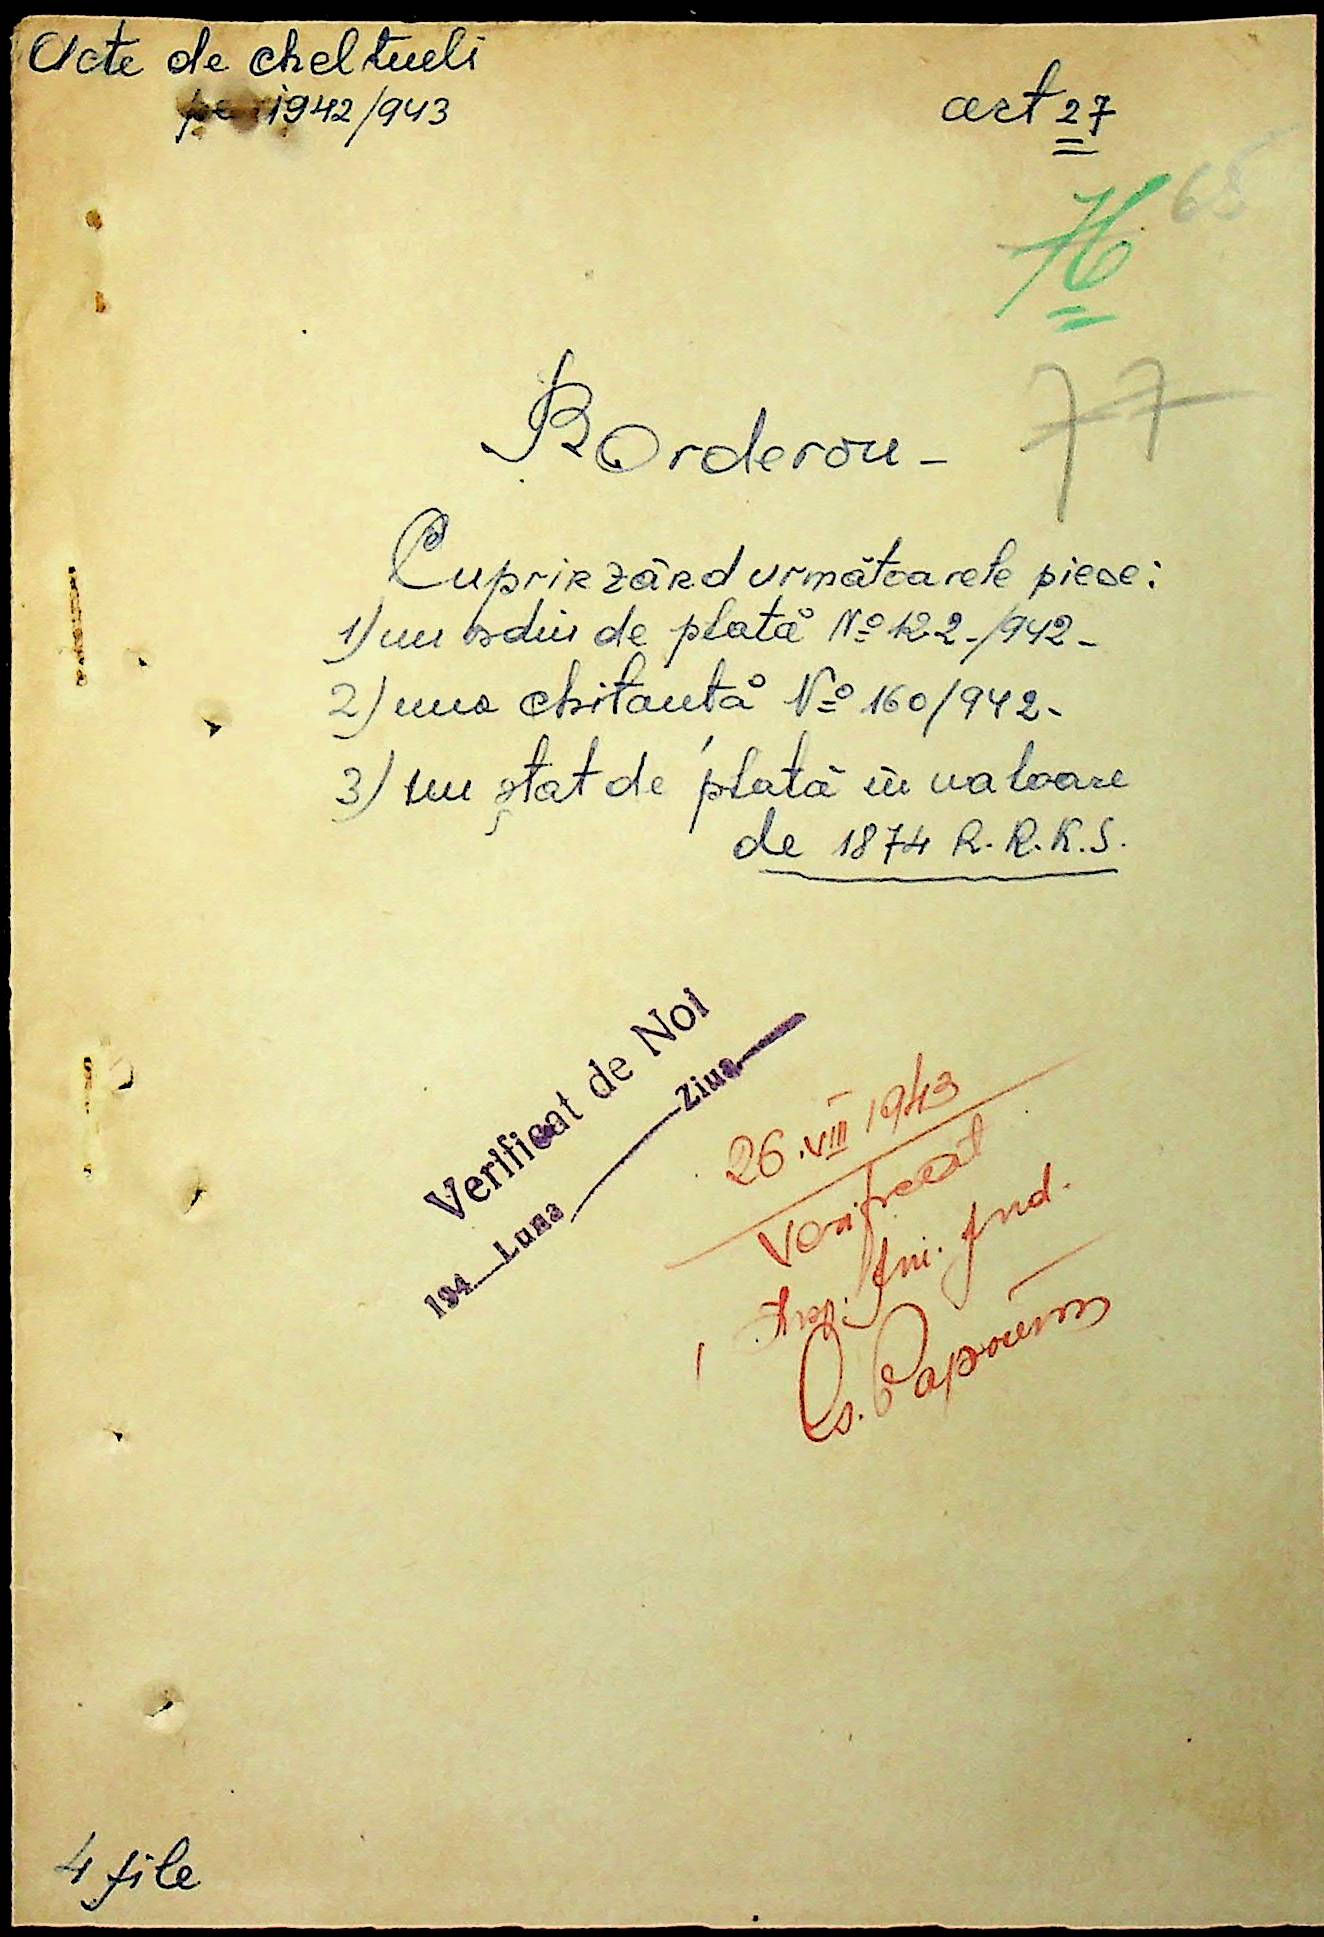 Acte de cheltueli
pe 1942/943
art 27
76
65
77
Borderou -
Cuprinzând următoarele piese:
1) un ordin de plată No 122-/942-
2) una chitanță No 160/942-
3) un ștat de plată în valoare
de 1874 R.R.K.S.
Verificat de Noi
194 Luna Ziua
26.VIII 1943
Verificat
Insp. Fin. Jud.
4 file